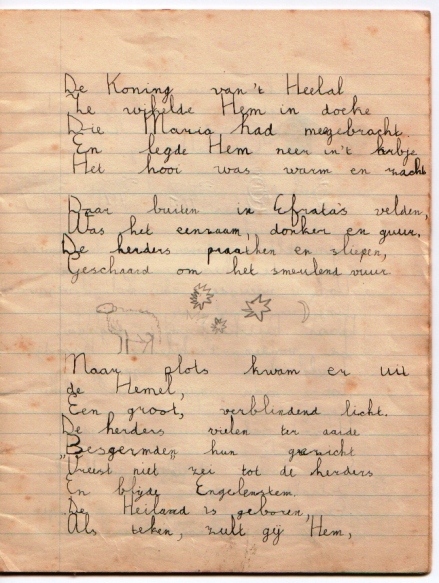 De Koning van't Heelal
Ze wikelde Hem in doeke
Die Maria had megebracht.
En legde Hem neer in't krbje
Het hooi was warm en zacht
Daar buiten in Efrata's velden,
Was het eenzaam, donker en guur.
De herders praathen en sliepen,
Geschaard om het smeulend vuur.
Maar plots kwam er uit
de Hemel,
Een groot, verblindend licht.
De herders vielen ter aarde
Besgermden hun gezicht
„Vreest niet zei tot de herders
En blijde Engelenstem.
De Heiland is geboren,
Als teken, zult gij Hem,